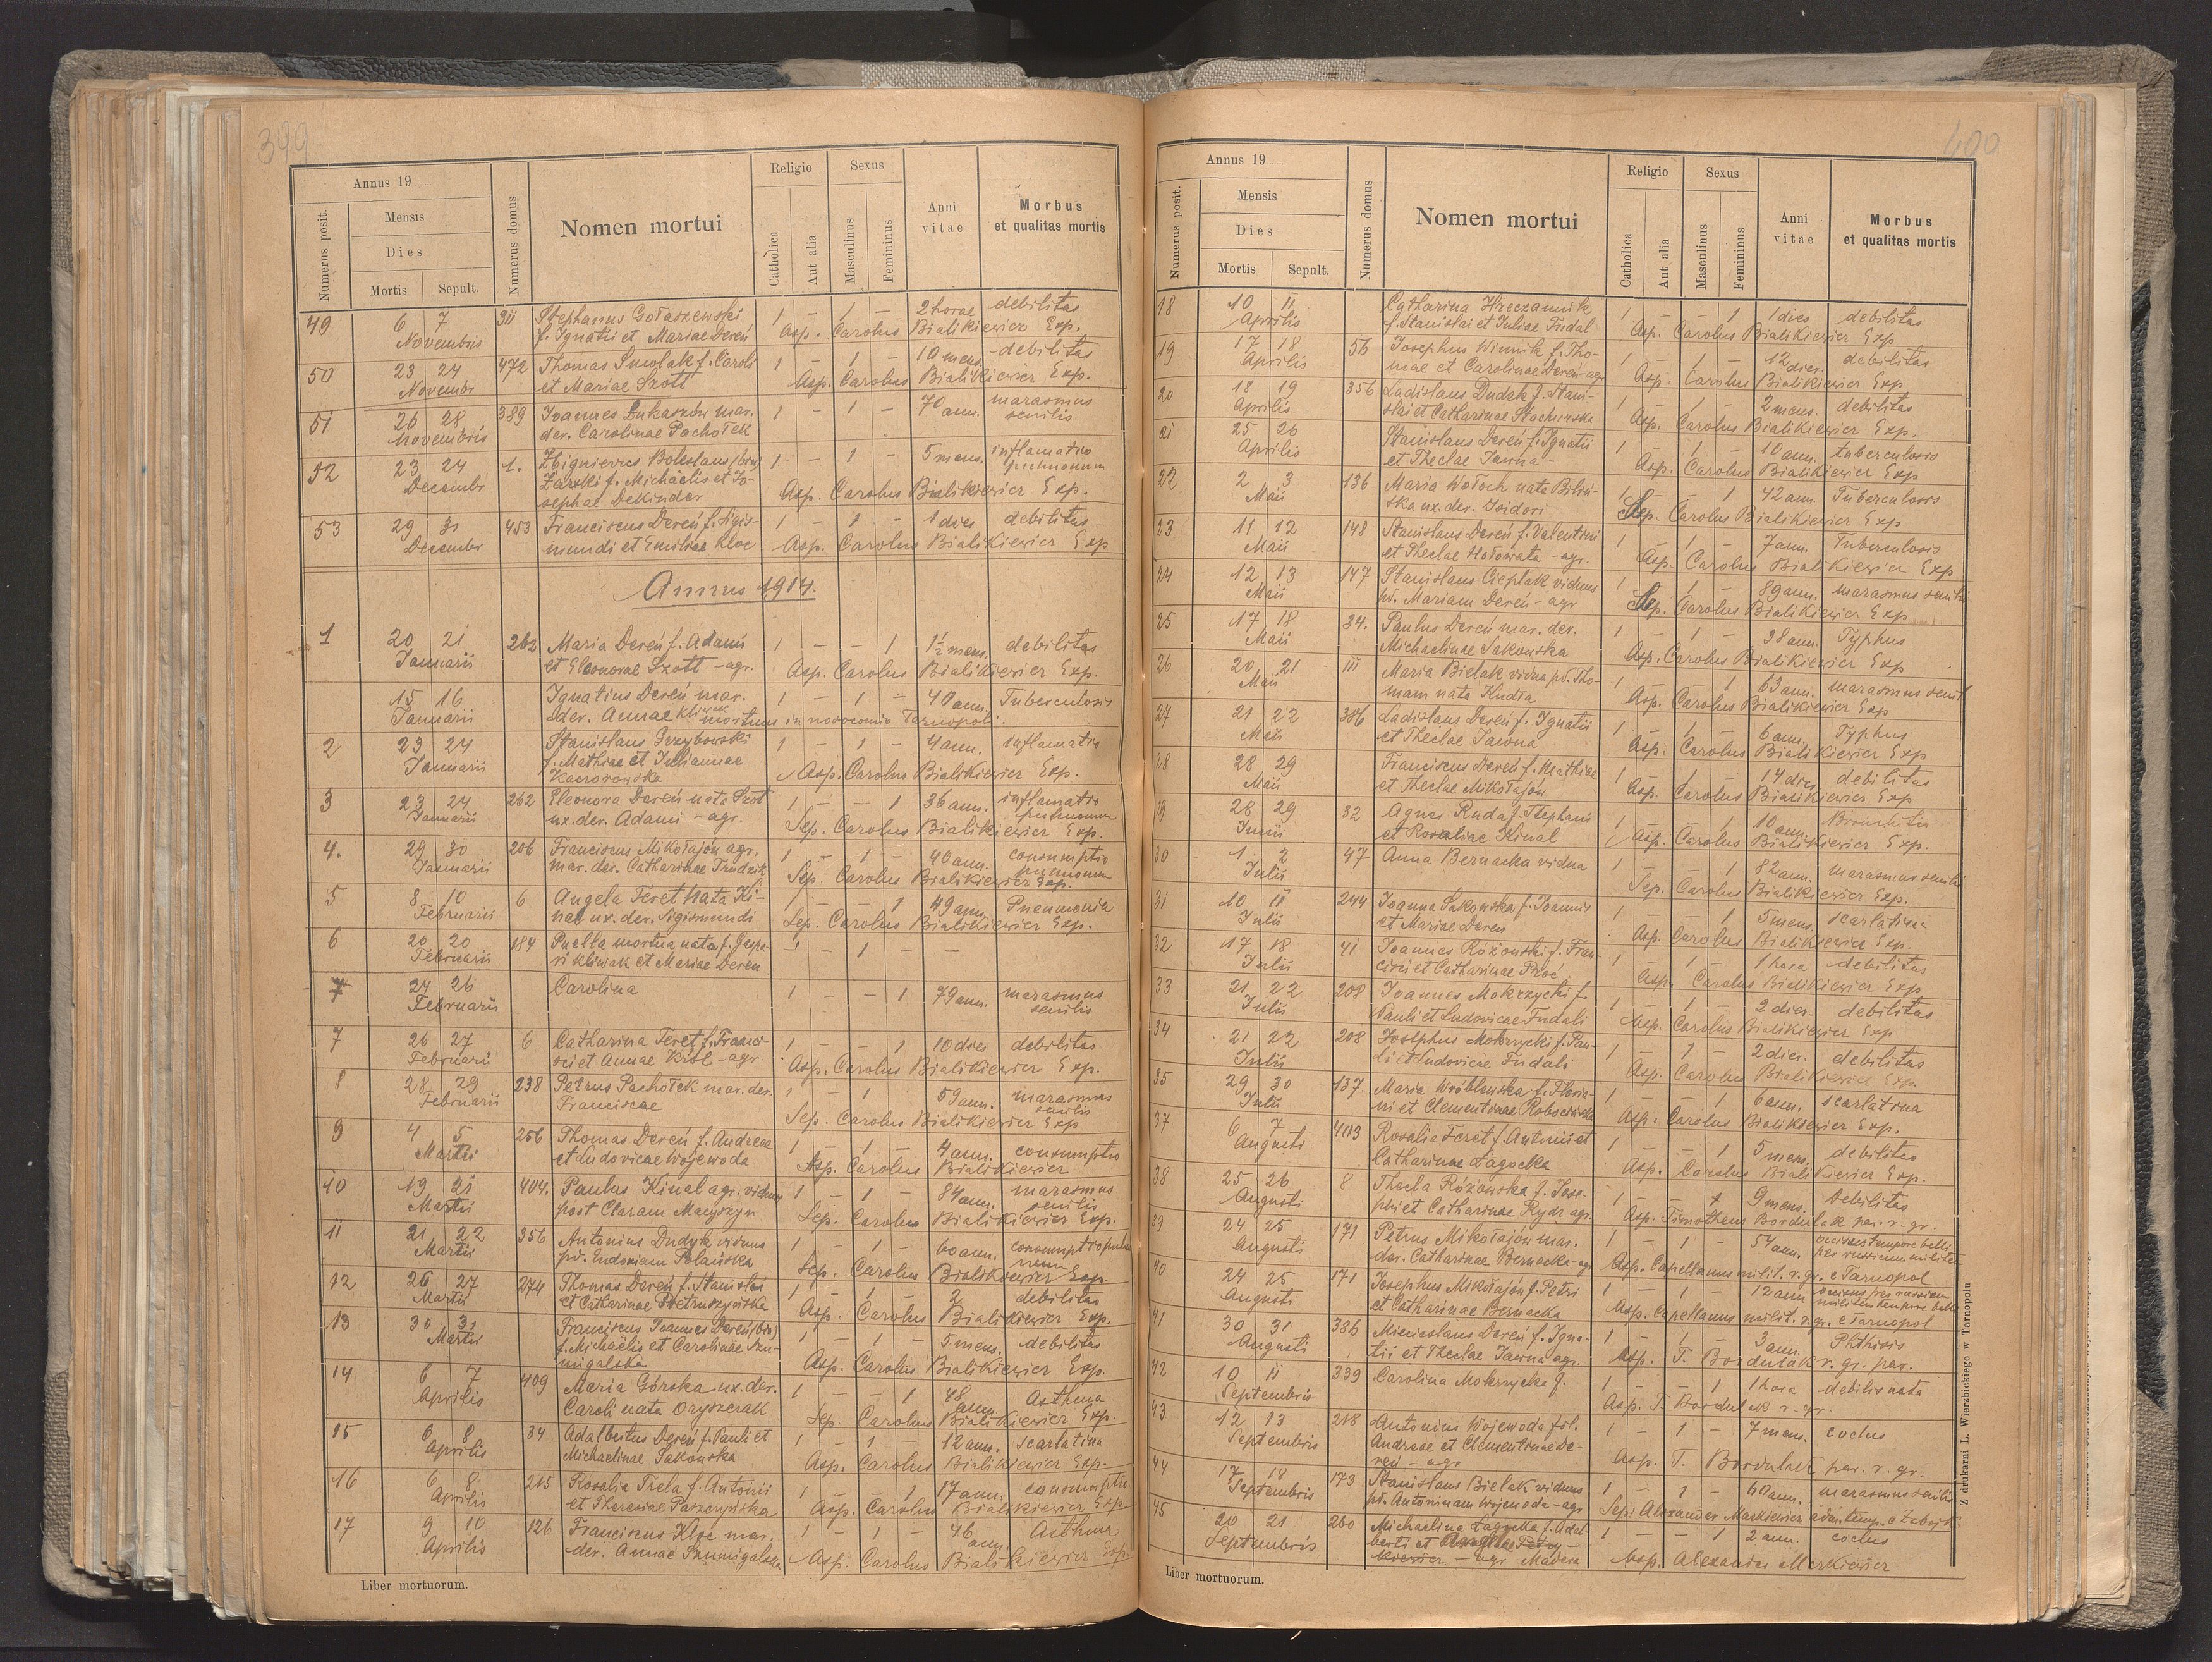 399
Annus 19
Numerus posit.
Mensis
Dies
Mortis Sepult.
Numerus domus
Nomen mortui
Religio
Catholica
Aut alia
Sexus
Masculinus
Femininus
Anni vitae
Morbus et qualitas mortis
49 6 7 311 Stephanus Gołaszewski 1 - 1 - 2 horae debilitas
Novembris f. Ignatii et Mariae Dereń Asp. Carolus Bialikiewicz Exp.
50 23 24 472 Thomas Smolak f. Caroli 1 - 1 - 10 mens. debilitas
Novembr et Mariae Szott Asp. Carolus Bialikiewicz Exp.
51 26 28 389 Ioannes Łukaszów mar. 1 - 1 - 70 ann. marasmus
Novembris der. Carolinae Pachołek senilis
52 23 24 1. Zbignievus Boleslaus (bin) 1 - 1 - 5 mens. inflamatio
Decembr Żarski f. Michaelis et Io- pulmonum
sephae Dekinder Asp. Carolus Bialikiewicz Exp.
53 29 31 453 Franciscus Dereń f. Sigis- 1 - 1 - 1 dies debilitas
Decembr mundi et Emiliae Kloc Asp. Carolus Bialikiewicz Exp
Annus 1914.
1 20 21 262 Maria Dereń f. Adami 1 - - 1 1½ mens. debilitas
Ianuarii et Eleonorae Szott - agr. Asp. Carolus Bialikiewicz Exp.
15 16 Ignatius Dereń mar. 1 - 1 - 40 ann. Tuberculosis
Ianuarii der. Annae Kliwak mortuus in nosocomio Tarnopoli.
2 23 24 Stanislaus Grzybowski 1 - 1 - 4 ann. inflamatio
Ianuarii f. Mathiae et Iuliannae
Kaczorowska Asp. Carolus Bialikiewicz Exp.
3 23 24 262 Eleonora Dereń nata Szot 1 - - 1 36 ann. inflamatio
Ianuarii ux. der. Adami - agr. pulmonum
Sep. Carolus Bialikiewicz Exp.
4. 29 30 206 Franciscus Mikołajów agr. 1 - 1 - 40 ann. consumptio
Ianuarii mar. der. Catharinae Trudzik pulmonum
Sep. Carolus Bialikiewicz Exp.
5 8 10 6 Angela Feret nata Ki- 1 - - 1 49 ann. Pneumonia
Februarii nal ux. der. Sigismundi Sep. Carolus Bialikiewicz Exp.
6 20 20 184 Puella mortua nata f. Gaspa- 1 - 1 - -
Februarii ri Kliwak et Mariae Dereń
7 24 26 Carolina 1 - - 1 79 ann. marasmus
Februarii senilis
7 26 27 6 Catharina Feret f. Franci- 1 - - 1 10 dies debilitas
Februarii sci et Annae Kist - agr Asp. Carolus Bialikiewicz Exp.
8 28 29 238 Petrus Pachołek mar. der. 1 - 1 59 ann. marasmus
Februarii Franciscae senilis
Sep. Carolus Bialikiewicz Exp
9 4 5 256 Thomas Dereń f. Andreae 1 - 1 - 4 ann. consumptio
Martii et Ludovicae Wojewoda Asp. Carolus Bialikiewicz
10 19 21 404. Paulus Kinal agr. viduus 1 - 1 - 84 ann. marasmus
Martii post Claram Macyszyn senilis
Sep. Carolus Bialikiewicz Exp.
11 21 22 356 Antonius Dudyk viduus 1 - 1 - 60 ann. consumptio pulmo
Martii pd. Eudoxiam Polańska num
Sep. Carolus Bialikiewicz Exp.
12 26 27 274 Thomas Dereń f. Stanislai 1 - 1 - 2 debilitas
Martii et Catharinae Pietruszyńska Asp. Carolus Bialikiewicz Exp.
13 30 31 Franciscus Ioannes Dereń (bin) 1 - 1 - 5 mens. debilitas
Martii f. Michaelis et Carolinae Szu-
migalska Asp. Carolus Bialikiewicz Exp.
14 6 7 409 Maria Górska ux. der. 1 - - 1 48 ann. Asthma
Aprilis Caroli nata Oryszczak Sep. Carolus Bialikiewicz Exp.
15 6 8 34 Adalbertus Dereń f. Pauli et 1 - 1 - 12 ann. scarlatina
Aprilis Michaelinae Sakowska Asp. Carolus Bialikiewicz Exp.
16 6 8 215 Rosalia Trela f. Antonii 1 - - 1 17 ann. consumptio
Aprilis et Theresiae Paszczyńska Asp. Carolus Bialikiewicz Exp
17 9 10 126 Franciscus Kloc mar. 1 - 1 - 46 ann. Asthma
Aprilis der. Annae Szumigalska Asp. Carolus Bialikiewicz Exp
Liber mortuorum.
400
Annus 19
Numerus posit.
Mensis
Dies
Mortis Sepult.
Numerus domus
Nomen mortui
Religio
Catholica
Aut alia
Sexus
Masculinus
Femininus
Anni vitae
Morbus et qualitas mortis
18 10 11 Catharina Hreczaniuk 1 - - 1 1 dies debilitas
Aprilis f. Stanislai et Iuliae Fudal Asp. Carolus Bialikiewicz Exp
19 17 18 56 Iosephus Winnik f. Tho- 1 - 1 - 12 dies. debilitas
Aprilis mae et Carolinae Dereń - agr Asp. Carolus Bialikiewicz Exp
20 18 19 356 Ladislaus Dudek f. Stani- 1 - 1 - 2 mens. debilitas
Aprilis slai et Catharinae Stachurska Asp. Carolus Bialikiewicz Exp.
21 25 26 Stanislaus Dereń f. Ignatii 1 - 1 - 10 ann. tuberculosis
Aprilis et Theclae Iawna - Asp. Carolus Bialikiewicz Exp
22 2 3 136 Maria Wołoch nata Biliń- 1 - - 1 42 ann. Tuberculosis
Maii ska ux. der. Isidori Sep. Carolus Bialikiewicz Exp
23 11 12 148 Stanislaus Dereń f. Valentini 1 - 1 - 7 ann. Tuberculosis
Maii et Theclae Hołówata - agr. Asp. Carolus Bialikiewicz Exp
24 12 13 147 Stanislaus Cieplak viduus 1 - 1 - 89 ann. marasmus senilis
Maii pd. Mariam Dereń - agr Sep. Carolus Bialikiewicz Exp
25 17 18 34. Paulus Dereń mar. der. 1 - 1 - 38 ann. Typhus
Maii Michaelinae Sakowska Asp. Carolus Bialikiewicz Exp
26 20 21 111 Maria Bielak vidua pd. Tho- 1 - - 1 63 ann. marasmus senil
Maii mam nata Kudła Asp. Carolus Bialikiewicz Exp
27 21 22 386 Ladislaus Dereń f. Ignatii 1 - 1 - 6 ann. Typhus
Maii et Theclae Iawna Asp. Carolus Bialikiewicz Exp
28 28 29 Franciscus Dereń f. Mathiae 1 - 1 - 14 dies debilitas
Maii et Theclae Mikołajów Asp. Carolus Bialikiewicz Exp
29 28 29 32 Agnes Ruda f. Stephani 1 - - 1 10 ann. Bronchitis
Iunii et Rosaliae Kinal Asp. Carolus Bialikiewicz Exp.
30 1 2 47 Anna Bernacka vidua 1 - - 1 82 ann. marasmus senilis
Iulii Sep. Carolus Bialikiewicz Exp.
31 10 11 244 Ioanna Sakowska f. Ioannis 1 - - 1 5 mens. scarlatina
Iulii et Mariae Dereń Asp. Carolus Bialikiewicz Exp.
32 17 18 41 Ioannes Różowski f. Fran- 1 - 1 - 1 hora debilitas
Iulii cisci et Catharinae Próć Asp. Carolus Bialikiewicz Exp
33 21 22 208 Ioannes Mokrzycki f. 1 - 1 - 2 dies. debilitas
Iulii Pauli et Ludovicae Fudali Asp. Carolus Bialikiewicz Exp
34 21 22 208 Iosephus Mokrzycki f. Pau- 1 - 1 - 2 dies. debilitas
Iulii li et Ludovicae Fudali Asp. Carolus Bialikiewicz Exp.
35 29 30 137. Maria Wróblewska f. Floria- 1 - - 1 6 ann. scarlatina
Iulii ni et Clementinae Robocińska Asp. Carolus Bialikiewicz Exp.
37 6 7 403 Rosalia Feret f. Antonii et 1 - - 1 5 mens. debilitas
Augusti Catharinae Łagocka Asp. Carolus Bialikiewicz Exp.
38 25 26 8 Thecla Różowska f. Iose- 1 - - 1 9 mens. debilitas
Augusti phi et Catharinae Rydz agr. Asp. Timotheus Bordulak par. r. gr.
39 24 25 171 Petrus Mikołajów mar. 1 - 1 - 54 ann. occisus tempore belli
Augusti der. Catharinae Bernacka - agr per russicum militem
Asp. Capellanus milit. r. gr. e Tarnopol
40 24 25 171 Iosephus Mikołajów f. Petri 1 - 1 - 12 ann occisus per russicum
Augusti et Catharinae Bernacka militem tempore belli
Asp. Capellanus milit. r. gr. e Tarnopol
41 30 31 386 Miecieslaus Dereń f. Igna- 1 - 1 - 3 ann. Phthisis
Augusti tii et Theclae Iawna agr. Asp. T. Bordulak r. gr. par.
42 10 11 339 Carolina Mokrzycka f. 1 - - 1 1 hora debilis nata
Septembris Asp. T. Bordulak r. gr.
43 12 13 218 Antonius Wojewoda fil. 1 - 1 - 7 mens. coclus
Septembris Andreae et Clementinae De-
reń - agr Asp. T. Bordulak par. r. gr.
44 17 18 173 Stanislaus Bielak viduus 1 - 1 - 60 ann. marasmus senilis
Septembris pd. Antoninam Wojewoda - agr Sep. Alexander Markiewicz adm. temp. e Zabojk.
45 20 21 260 Michaelina Łagocka f. Adal- 1 - - 1 2 ann. coclus
Septembris berti et Angelae
- agr Madera Asp. Alexander Markiewicz
Liber mortuorum.
Z drukarni L. Wierzbickiego w Tarnopolu